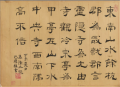 東南山水餘杭
郡為最就郡言
靈隱寺為尤由
寺觀冷泉亭為
甲亭在山下水
中央寺西南隅
高不倍